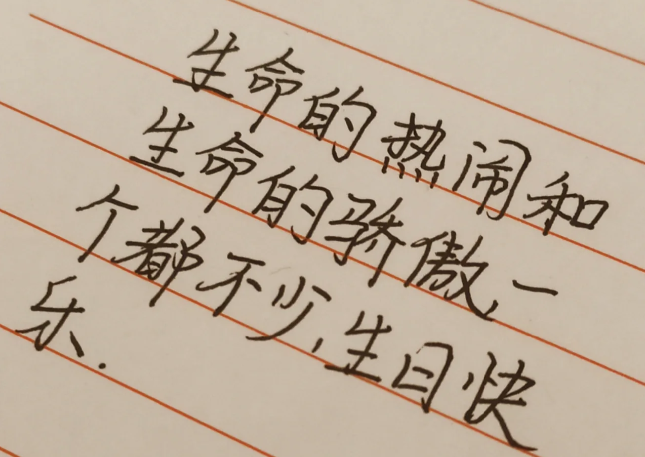 生命的热闹和
生命的骄傲,一
个都不少,生日快
乐.